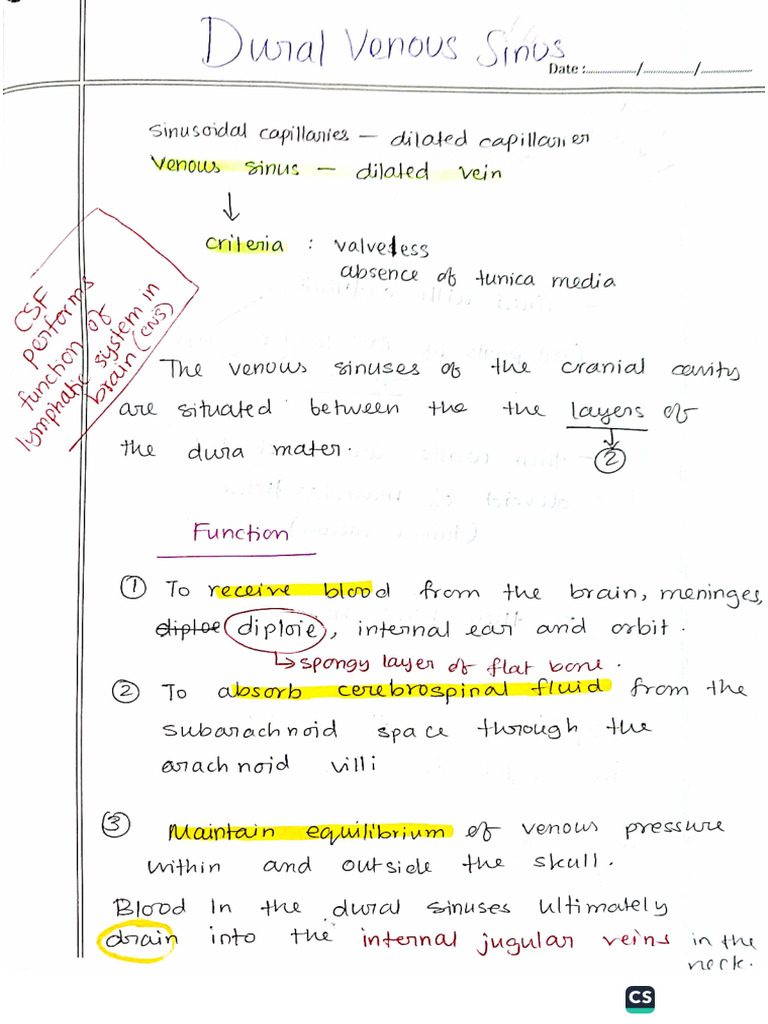 Dural Venous Sinus
Date :............../............../..............
Sinusoidal capillaries – dilated capillaries
Venous sinus – dilated vein
↓
criteria : valveless
absence of tunica media
CSF
performs
function of
lymphatic system in
brain (CNS)
The venous sinuses of the cranial cavity
are situated between the the layers of
②
the dura mater.
Function
① To receive blood from the brain, meninges,
diploe diploie, internal ear and orbit.
↳ spongy layer of flat bone.
② To absorb cerebrospinal fluid from the
subarachnoid space through the
arachnoid villi
③ Maintain equilibrium of venous pressure
within and outside the skull.
Blood In the dural sinuses ultimately
drain into the internal jugular veins in the
neck.
CS